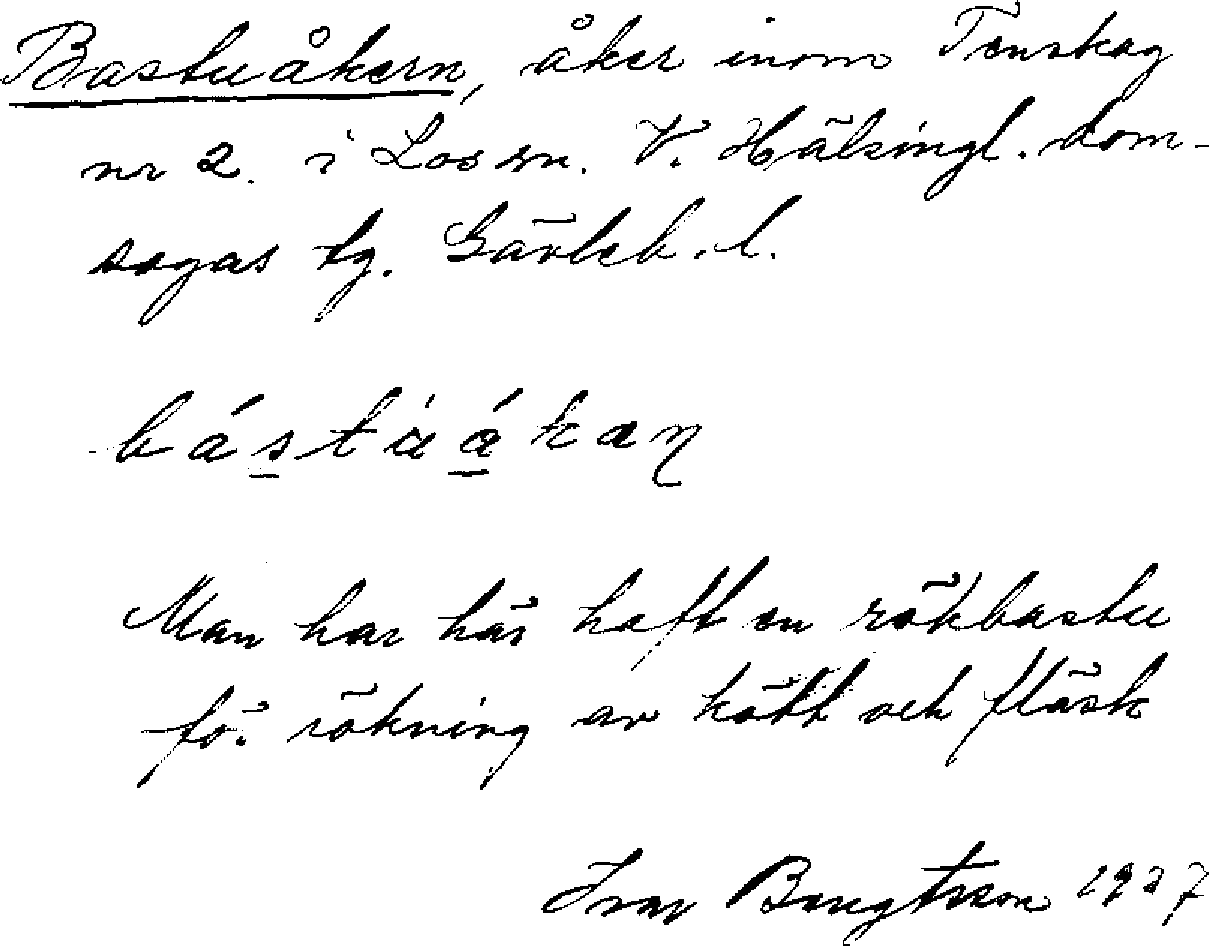 Bastuåkern, åker inom Tenskog
nr 2. i Los sn. V. Hälsingl. dom-
sagas tg. Gävleb. l.
Man har här haft en rökbastu
för rökning av kött och fläsk
Ivar Bengtsson 1927